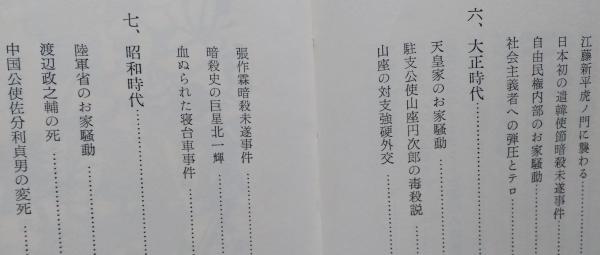 江藤新平虎ノ門に襲わる…………
日本初の遣韓使節暗殺未遂事件…
自由民権内部のお家騒動…………
社会主義者への弾圧とテロ………
六、大正時代………………
天皇家のお家騒動…………
駐支公使山座円次郎の毒殺説……
山座の対支強硬外交…………
張作霖暗殺未遂事件…………
暗殺史の巨星北一輝…………
血ぬられた寝台車事件…………
七、昭和時代………………
陸軍省のお家騒動…………
渡辺政之輔の死……………
中国公使佐分利貞男の変死………